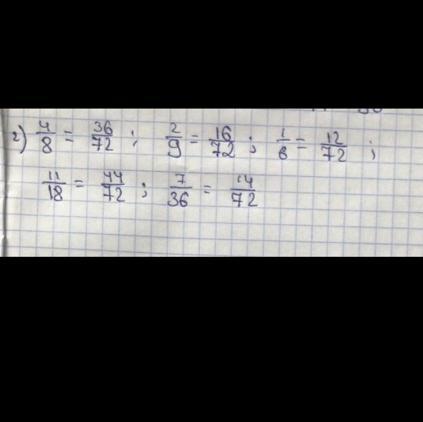 2) 4/8 = 36/72 ; 2/9 = 16/72 ; 1/6 = 12/72 ;
11/18 = 44/72 ; 7/36 = 14/72